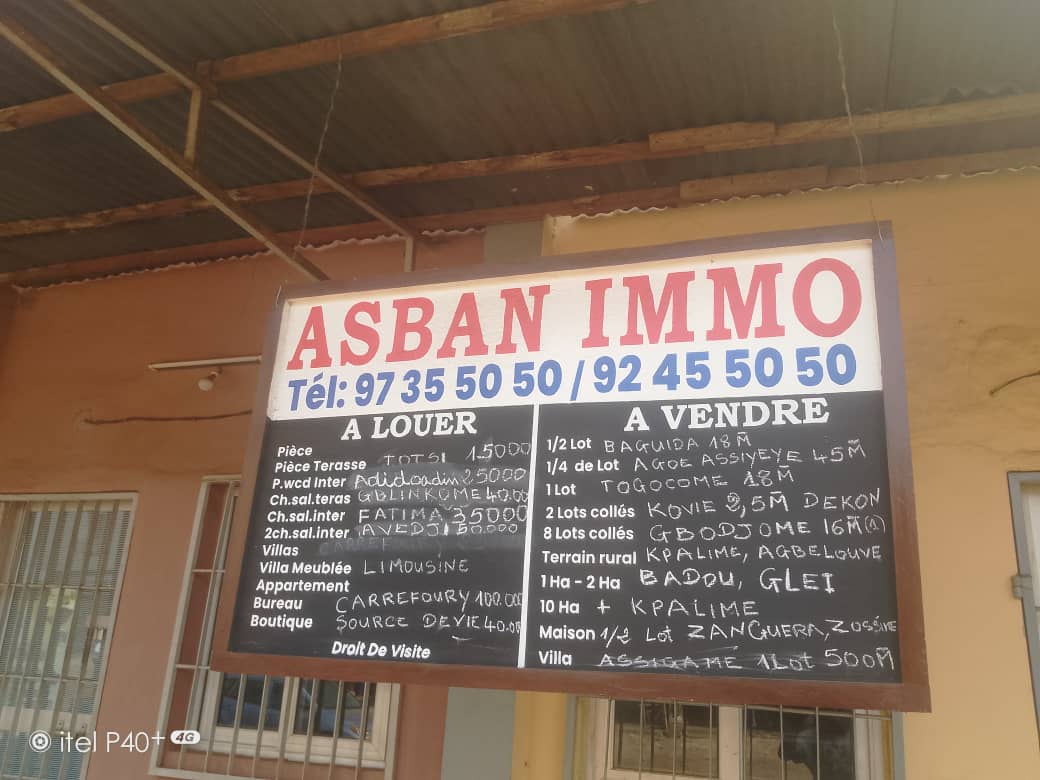 ASBAN IMMO
Tél: 97 35 50 50 / 92 45 50 50
A LOUER
Pièce
Pièce Terasse TOTSI 15000
P.wcd Inter Adidoadin 25000
Ch.sal.teras GBLINKOME 40.00
Ch.sal.inter FATIMA 35000
2ch.sal.inter AVEDJI 50.000
Villas
Villa Meublée LIMOUSINE
Appartement
Bureau CARREFOURY 100.000
Boutique SOURCE DEVIE 40.00
Droit De Visite
A VENDRE
1/2 Lot BAGUIDA 18M
1/4 de Lot AGOE ASSIYEYE 45M
1 Lot TOGOCOME 18M
2 Lots collés KOVIE 2,5M DEKON
8 Lots collés GBODJOME 16M (1)
Terrain rural KPALIME, AGBELOUVE
1 Ha - 2 Ha BADOU, GLEI
10 Ha + KPALIME
Maison 1/2 Lot ZANGUERA, ZOSSIME
Villa ASSIGAME 1Lot 500M
itel P40+ 4G